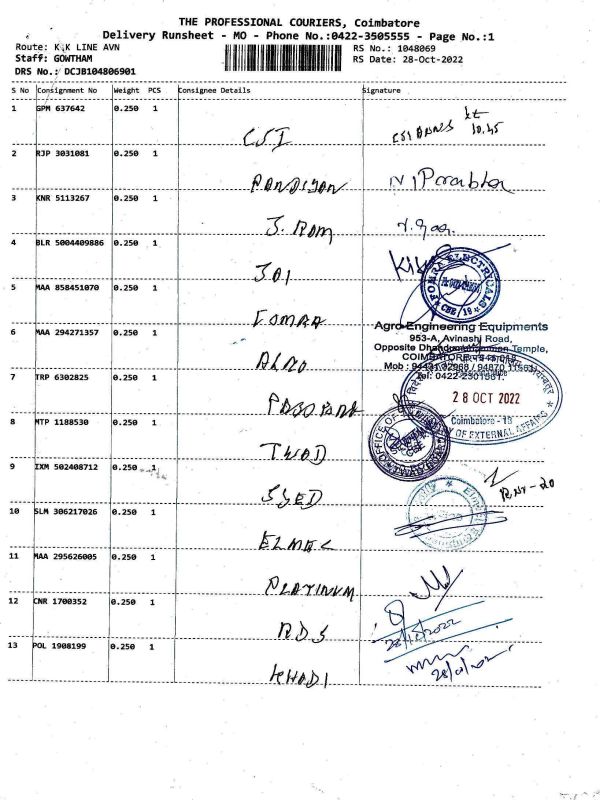 THE PROFESSIONAL COURIERS, Coimbatore
Delivery Runsheet - MO - Phone No.:0422-3505555 - Page No.:1
Route: K.K LINE AVN RS No.: 1048069
Staff: GOWTHAM RS Date: 28-Oct-2022
DRS No.: DCJB104806901
S No Consignment No Weight PCS Consignee Details Signature
1 GPM 637642 0.250 1
CSI 10.45
2 RJP 3031081 0.250 1
PANDIYAN
3 KNR 5113267 0.250 1
J. RAM
4 BLR 5004409886 0.250 1
JAI
5 MAA 858451070 0.250 1
FOMRA
FOMRA ELECTRICALS
CBE
6 MAA 294271357 0.250 1
Agro Engineering Equipments
953-A, Avinashi Road,
Opposite Temple,
COIMBATORE
Mob :
Tel: 0422
7 TRP 6302825 0.250 1
28 OCT 2022
Coimbatore - 18
MINISTRY OF EXTERNAL AFFAIRS
8 MTP 1188530 0.250 1
TWAD
OFFICE OF
9 IXM 502408712 0.250 1
SYED
10 SLM 306217026 0.250 1
ELMEC
11 MAA 295626005 0.250 1
PLATINUM
12 CNR 1700352 0.250 1
RDS
28/10/2022
13 POL 1908199 0.250 1
KHADI